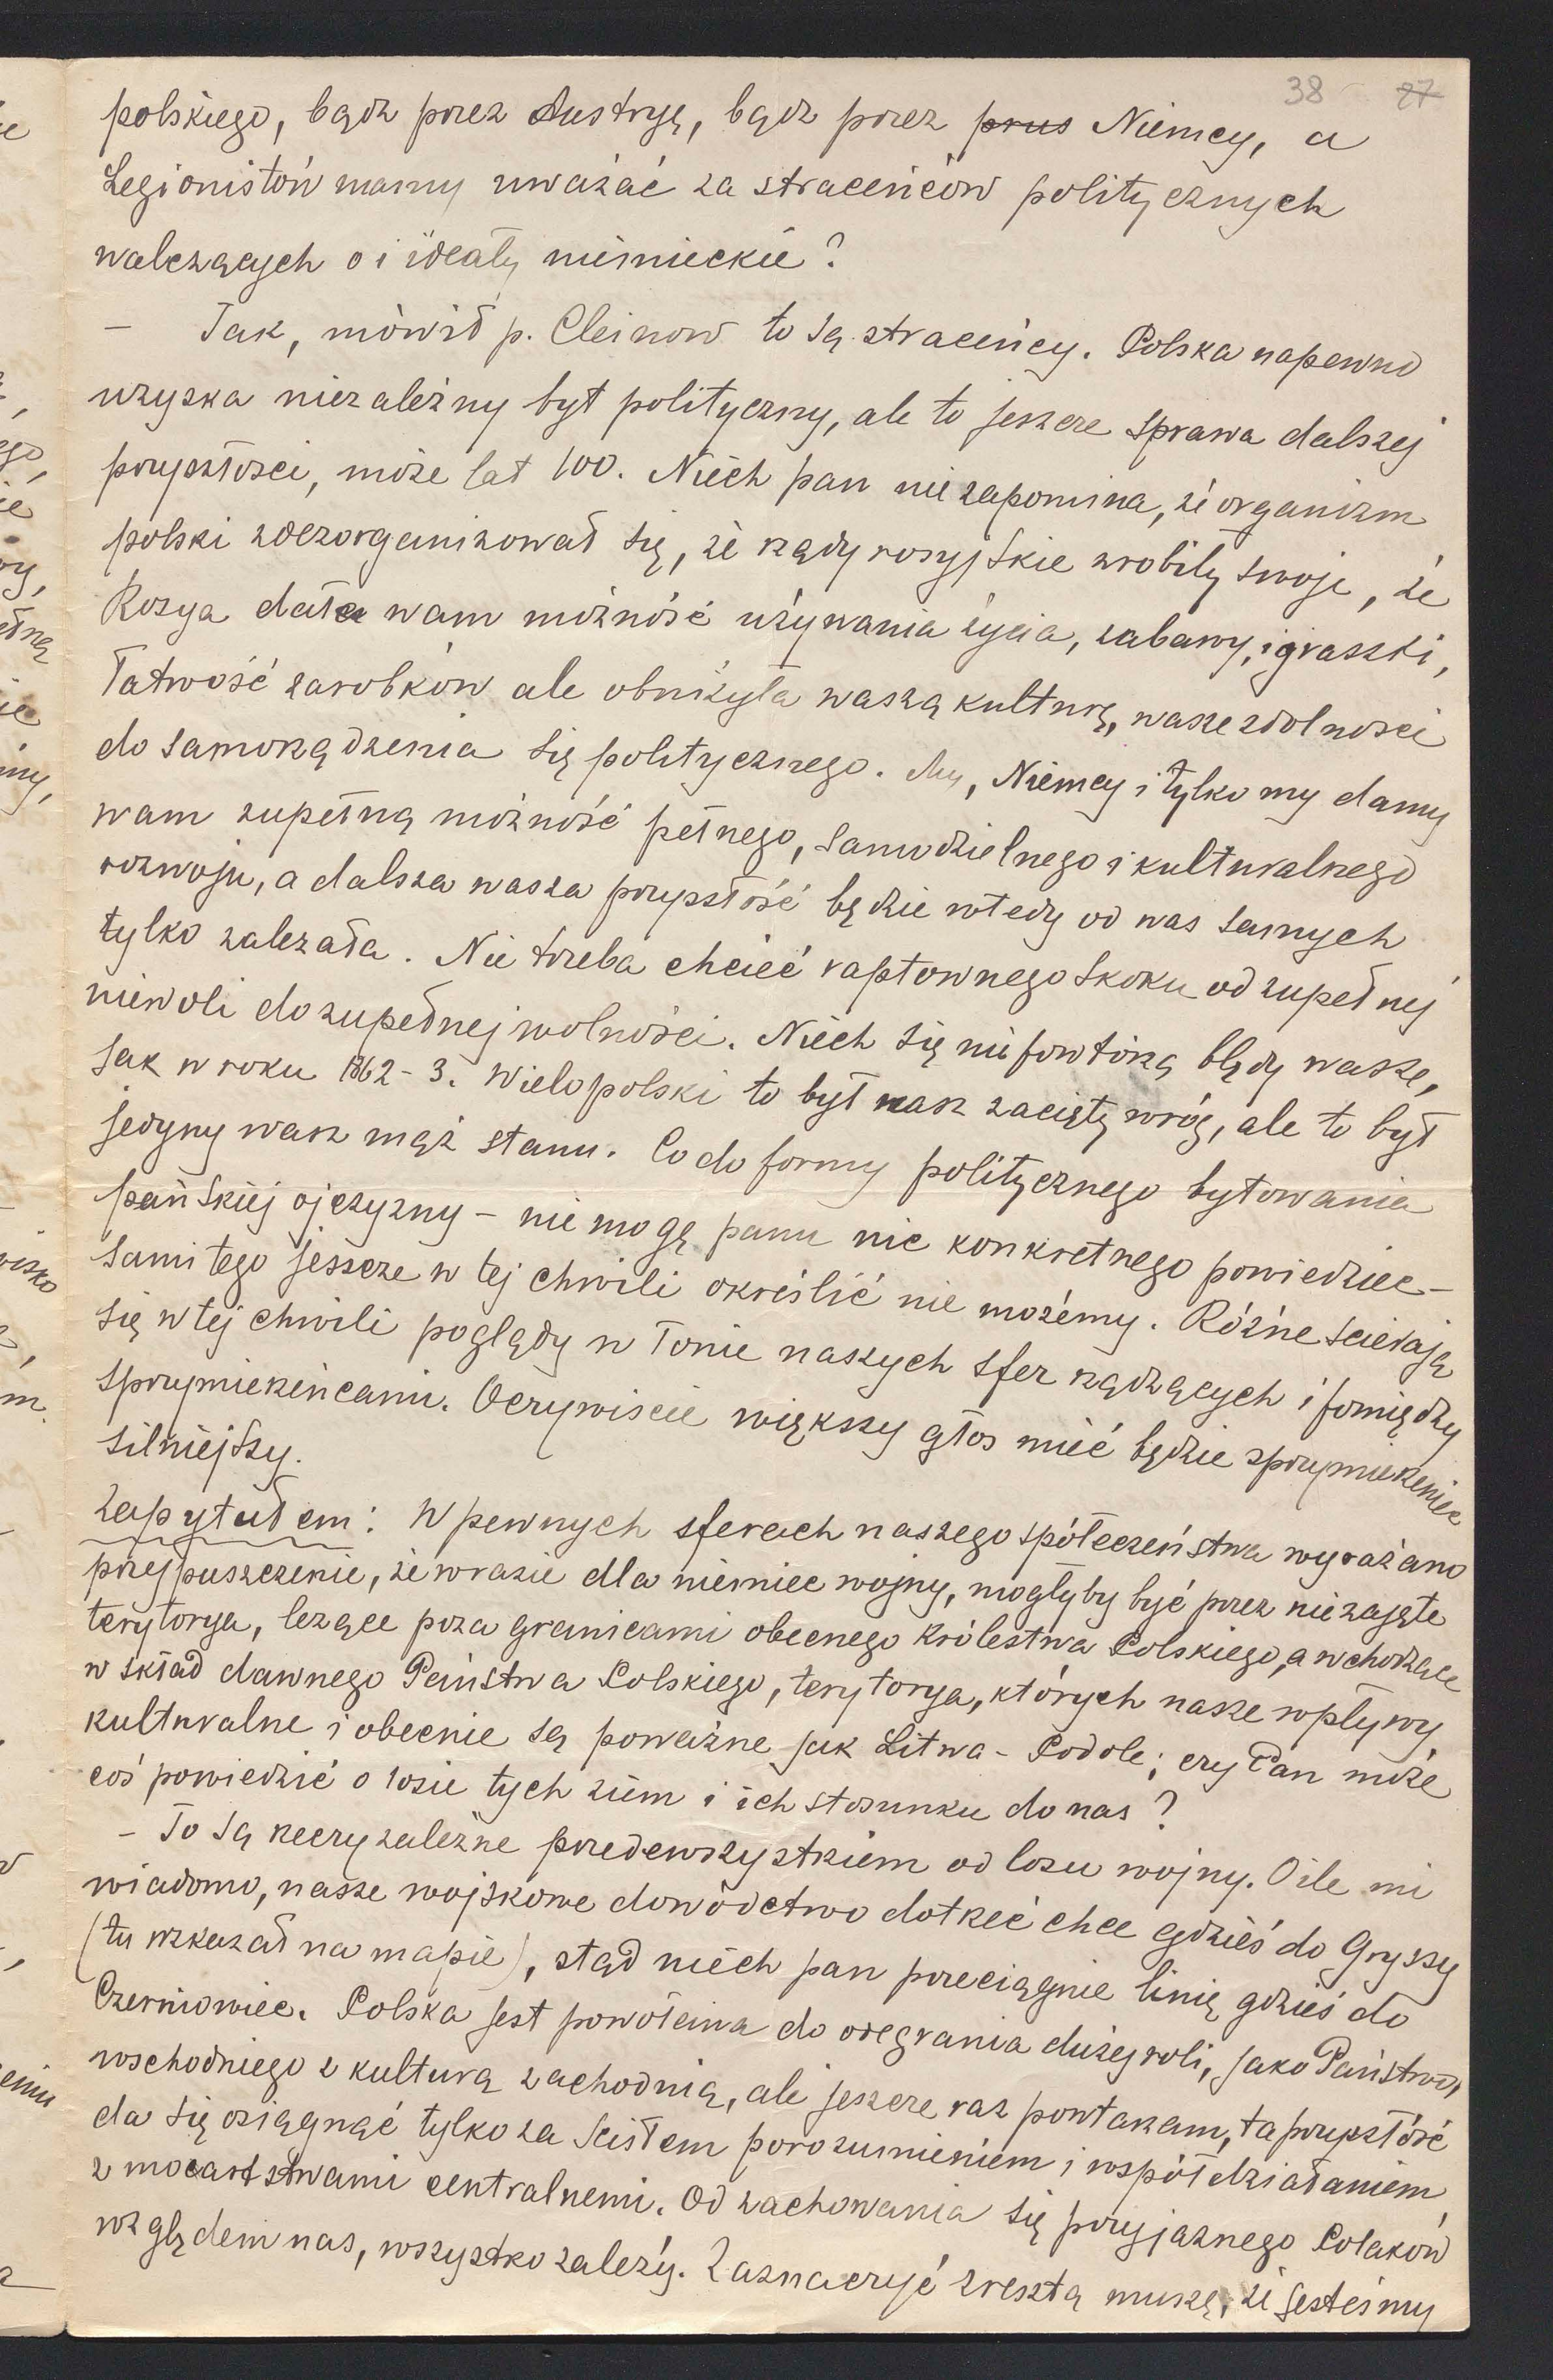 38 27
polskiego, bądź przez Austryę, bądź przez prus Niemcy, a
Legionistów mamy uważać za straceńców politycznych
walczących o i ideały niemieckie?
– Tak, mówił p. Cleinow to są straceńcy. Polska napewno
uzyska niezależny byt polityczny, ale to jeszcze sprawa dalszej
przyszłości, może lat 100. Niech pan nie zapomina, że organizm
polski zdezorganizował się, że rządy rosyjskie zrobiły swoje, że
Rosya dała wam możność używania życia, zabawy, igraszki,
łatwość zarobków ale obniżyła waszą kulturę, wasze zdolności
do samorządzenia się politycznego. My, Niemcy i tylko my damy
wam zupełną możność pełnego, samodzielnego i kulturalnego
rozwoju, a dalsza wasza przyszłość będzie wtedy od was samych
tylko zależała. Nie trzeba chcieć raptownego skoku od zupełnej
niewoli do zupełnej wolności. Niech się nie powtórzą błędy wasze,
jak w roku 1862-3. Wielopolski to był nasz zacięty wróg, ale to był
jedyny wasz mąż stanu. Co do formy politycznego bytowania
pańskiej ojczyzny – nie mogę panu nic konkretnego powiedzieć –
sami tego jeszcze w tej chwili określić nie możemy. Różne ścierają
się w tej chwili poglądy w łonie naszych sfer rządzących i pomiędzy
sprzymierzeńcami. Oczywiście większy głos mieć będzie sprzymierzeniec
silniejszy.
Zapytałem: W pewnych sferach naszego społeczeństwa wyrażano
przypuszczenie, że w razie dla niemiec wojny, mogłyby być przez nie zajęte
terytorya, leżące poza granicami obecnego Królestwa Polskiego, a wchodzące
w skład dawnego Państwa Polskiego, terytorya, których nasze wpływy
kulturalne i obecnie są poważne jak Litwa – Podole; czy Pan może
coś powiedzić o losie tych ziem i ich stosunku do nas?
– To są rzeczy zależne przedewszystkiem od losu wojny. O ile mi
wiadomo, nasze wojskowe dowództwo dotrzeć chce gdzieś do Gryszy
(tu wskazał na mapie), stąd niech pan przeciągnie linię gdzieś do
Czerniowiec. Polska jest powołana do odegrania dużej roli, jako Państwo,
wschodniego z kulturą zachodnią, ale jeszcze raz powtarzam, ta przyszłość
da się osiągnąć tylko za ścisłem porozumieniem i współdziałaniem
z mocarstwami centralnemi. Od zachowania się przyjaznego Polaków
względem nas, wszystko zależy. Zaznaczyć zresztą muszę, że jesteśmy